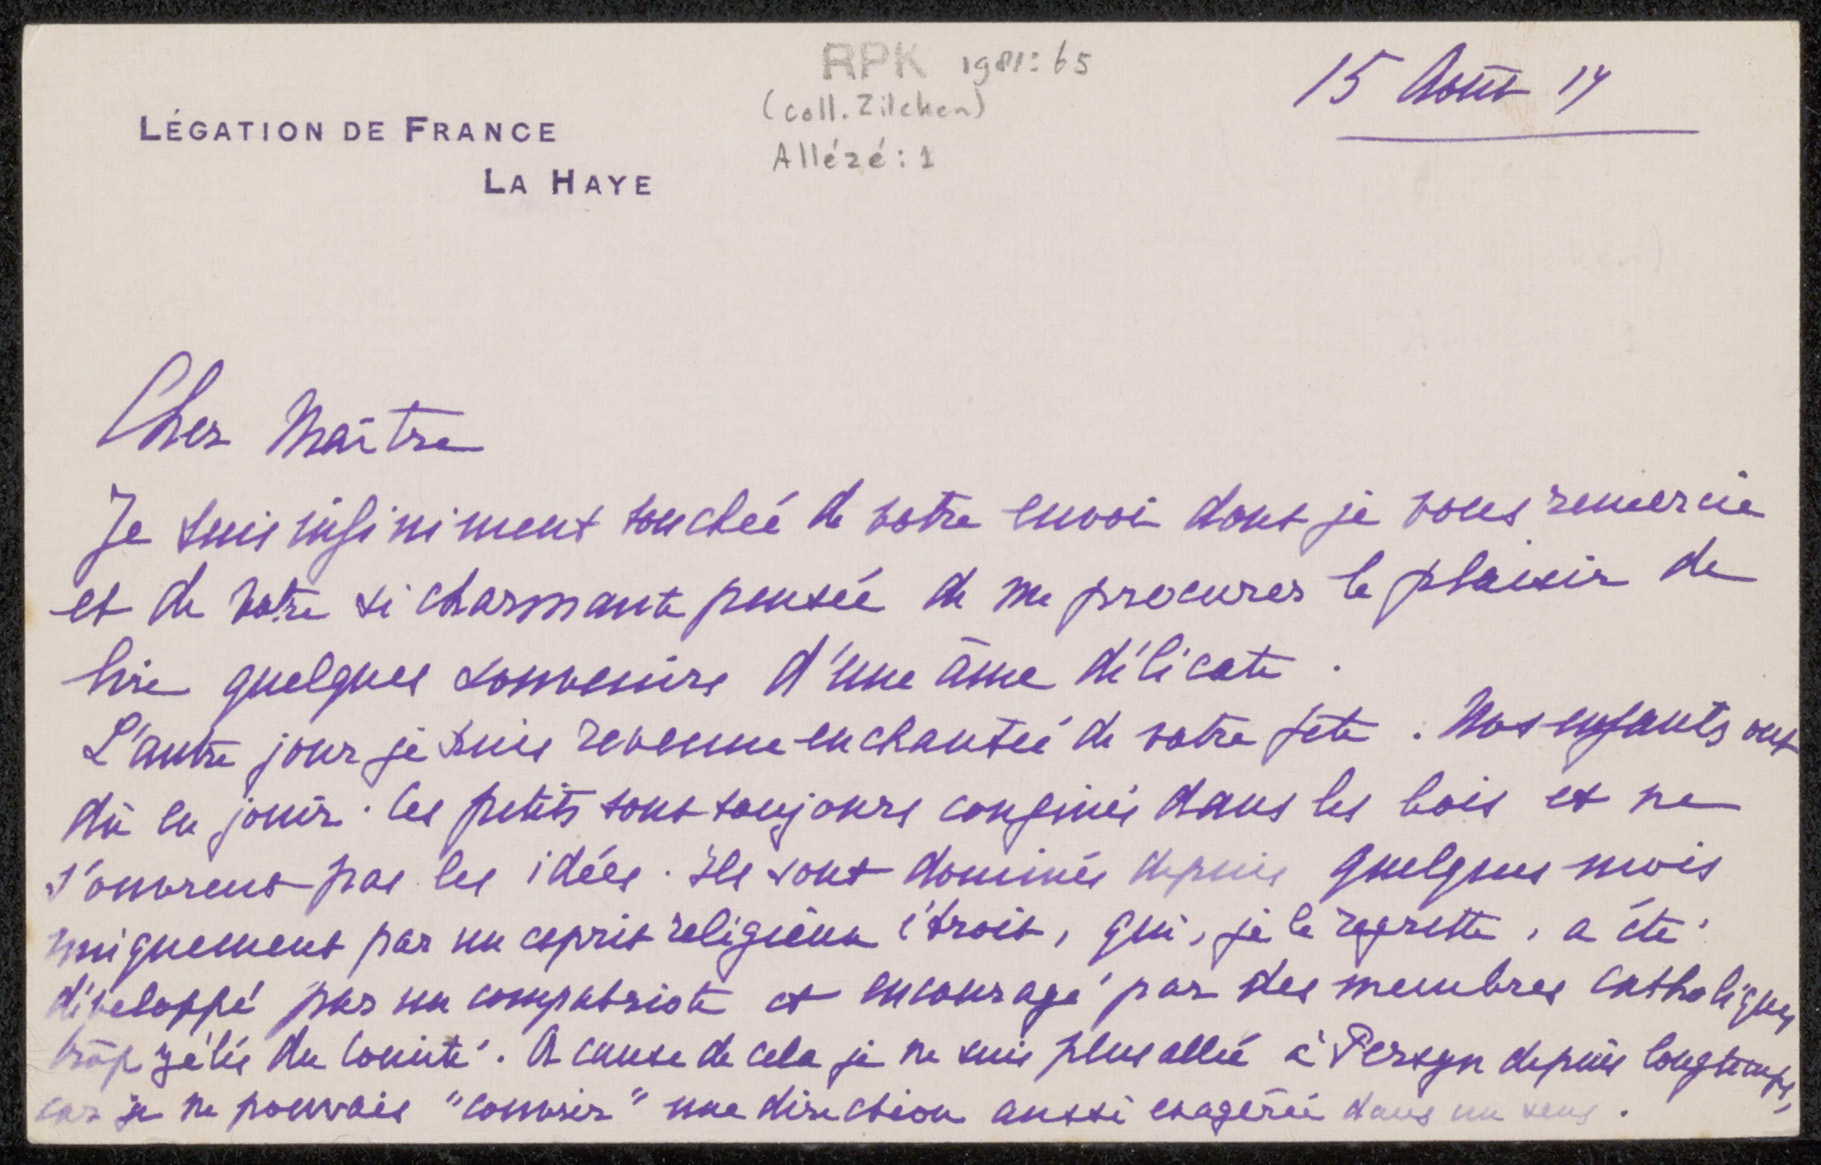 RPK 1981:65
(coll. Zilcken)
Allézé: 1
15 Août 17
LÉGATION DE FRANCE
LA HAYE
Cher Maître
Je suis infiniment touchée de votre envoi dont je vous remercie
et de votre si charmante pensée de me procurer le plaisir de
lire quelques souvenirs d'une âme délicate.
L'autre jour je suis revenue enchantée de votre fête. Nos enfants ont
dû en jouir. Ces petits sont toujours confinés dans les bois et ne
s'ouvrent pas les idées. Ils sont dominés depuis quelques mois
uniquement par un esprit religieux étroit, qui, je le regrette, a été
développé par un compatriote et encouragé par des membres catholiques
trop zélés du Comité. A cause de cela je ne suis plus allée à Persyn depuis longtemps,
car je ne pouvais "couvrir" une direction aussi exagérée dans un sens.